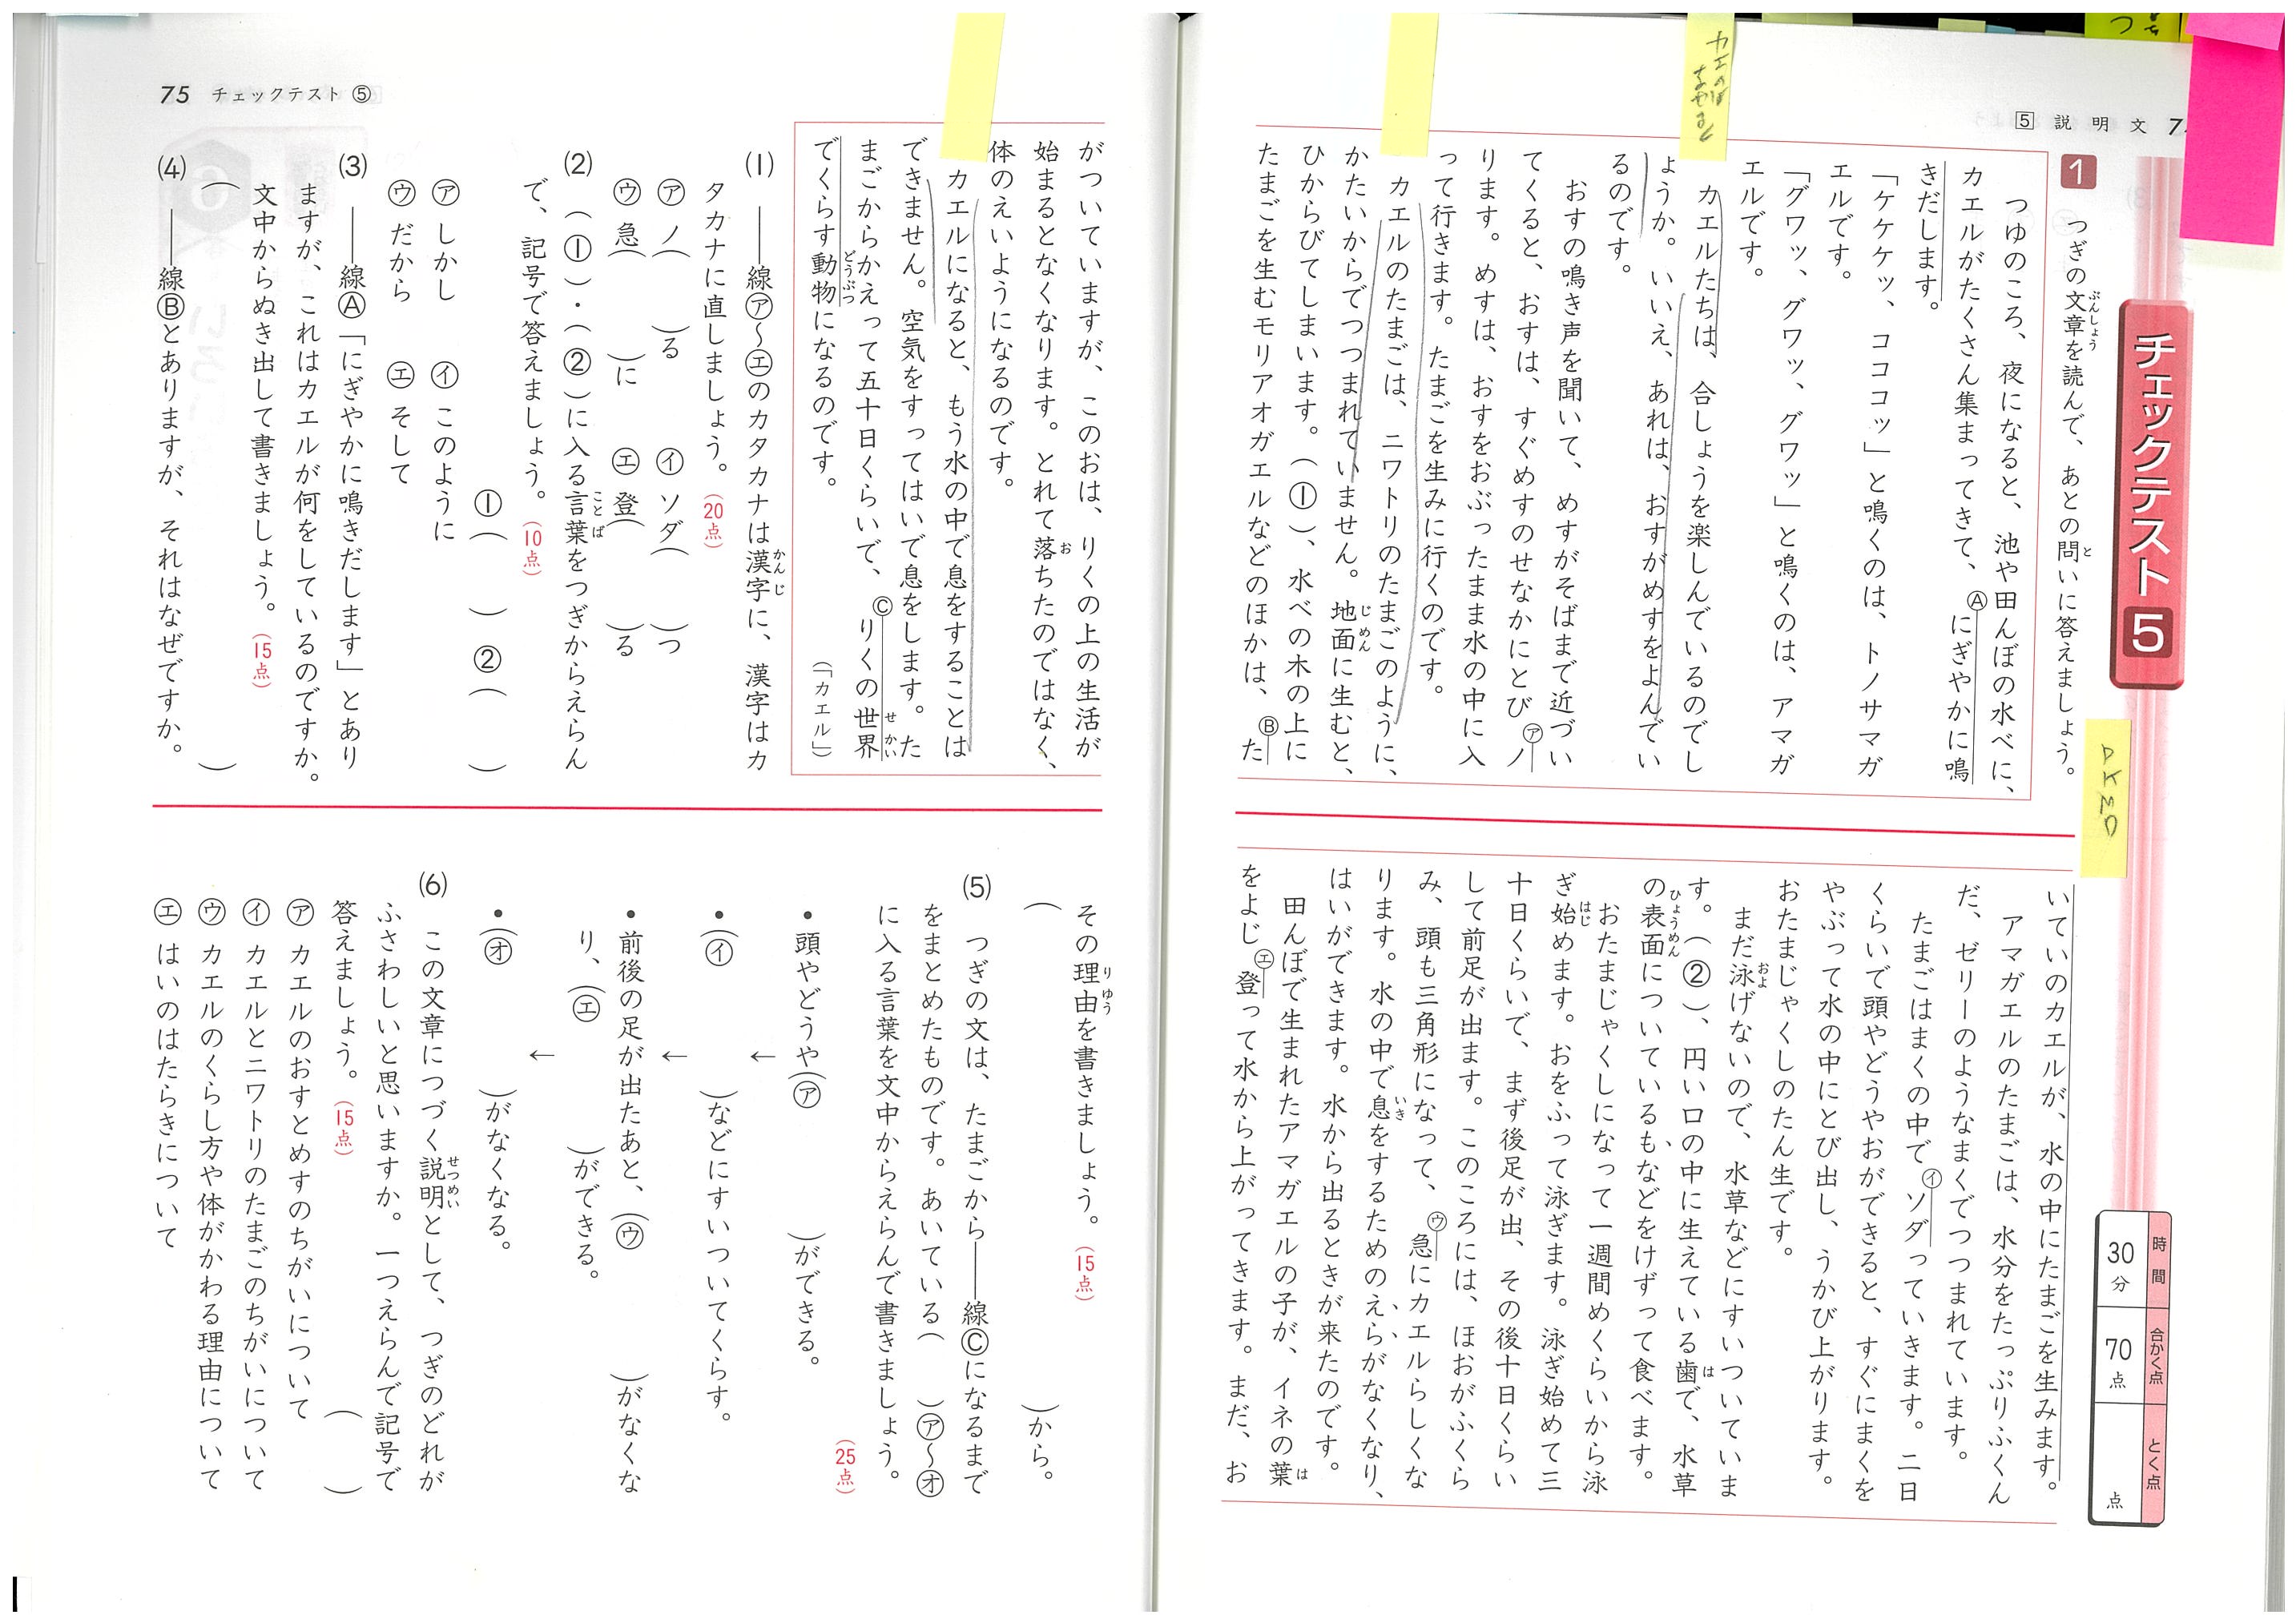 5 説明文
チェックテスト 5
時間
30分
合かく点
70点
とく点
点
1 つぎの文章を読んで、あとの問いに答えましょう。
つゆのころ、夜になると、池や田んぼの水べに、
カエルがたくさん集まってきて、Ⓐにぎやかに鳴
きだします。
「ケケケッ、コココッ」と鳴くのは、トノサマガ
エルです。
「グワッ、グワッ、グワッ」と鳴くのは、アマガ
エルです。
カエルたちは、合しょうを楽しんでいるのでし
ょうか。いいえ、あれは、おすがめすをよんでい
るのです。
おすの鳴き声を聞いて、めすがそばまで近づい
てくると、おすは、すぐめすのせなかにとび㋐ノ
ります。めすは、おすをおぶったまま水の中に入
って行きます。たまごを生みに行くのです。
カエルのたまごは、ニワトリのたまごのように、
かたいからでつつまれていません。地面に生むと、
ひからびてしまいます。(①)、水べの木の上に
たまごを生むモリアオガエルなどのほかは、Ⓑた
いていのカエルが、水の中にたまごを生みます。
アマガエルのたまごは、水分をたっぷりふくん
だ、ゼリーのようなまくでつつまれています。
たまごはまくの中で㋑ソダっていきます。二日
くらいで頭やどうやおができると、すぐにまくを
やぶって水の中にとび出し、うかび上がります。
おたまじゃくしのたん生です。
まだ泳げないので、水草などにすいついていま
す。(②)、円い口の中に生えている歯で、水草
の表面についているもなどをけずって食べます。
おたまじゃくしになって一週間めくらいから泳
ぎ始めます。おをふって泳ぎます。泳ぎ始めて三
十日くらいで、まず後足が出、その後十日くらい
して前足が出ます。このころには、ほおがふくら
み、頭も三角形になって、㋒急にカエルらしくな
ります。水の中で息をするためのえらがなくなり、
はいができます。水から出るときが来たのです。
田んぼで生まれたアマガエルの子が、イネの葉
をよじ㋓登って水から上がってきます。まだ、お
がついていますが、このおは、りくの上の生活が
始まるとなくなります。とれて落ちたのではなく、
体のえいようになるのです。
カエルになると、もう水の中で息をすることは
できません。空気をすってはいで息をします。た
まごからかえって五十日くらいで、Ⓒりくの世界
でくらす動物になるのです。
(「カエル」)
75 チェックテスト⑤
(1) ――線㋐〜㋓のカタカナは漢字に、漢字はカ
タカナに直しましょう。(20点)
㋐ ノ( )る ㋑ ソダ( )つ
㋒ 急( )に ㋓ 登( )る
(2) (①)・(②)に入る言葉をつぎからえらん
で、記号で答えましょう。(10点)
①( ) ②( )
㋐ しかし ㋑ このように
㋒ だから ㋓ そして
(3) ――線Ⓐ「にぎやかに鳴きだします」とあり
ますが、これはカエルが何をしているのですか。
文中からぬき出して書きましょう。(15点)
( )
(4) ――線Ⓑとありますが、それはなぜですか。
その理由を書きましょう。(15点)
( )から。
(5) つぎの文は、たまごから――線Ⓒになるまで
をまとめたものです。あいている( )㋐〜㋔
に入る言葉を文中からえらんで書きましょう。
(25点)
・頭やどうや(㋐ )ができる。
←
・(㋑ )などにすいついてくらす。
←
・前後の足が出たあと、(㋒ )がなくな
り、(㋓ )ができる。
←
・(㋔ )がなくなる。
(6) この文章につづく説明として、つぎのどれが
ふさわしいと思いますか。一つえらんで記号で
答えましょう。(15点) ( )
㋐ カエルのおすとめすのちがいについて
㋑ カエルとニワトリのたまごのちがいについて
㋒ カエルのくらし方や体がかわる理由について
㋓ はいのはたらきについて